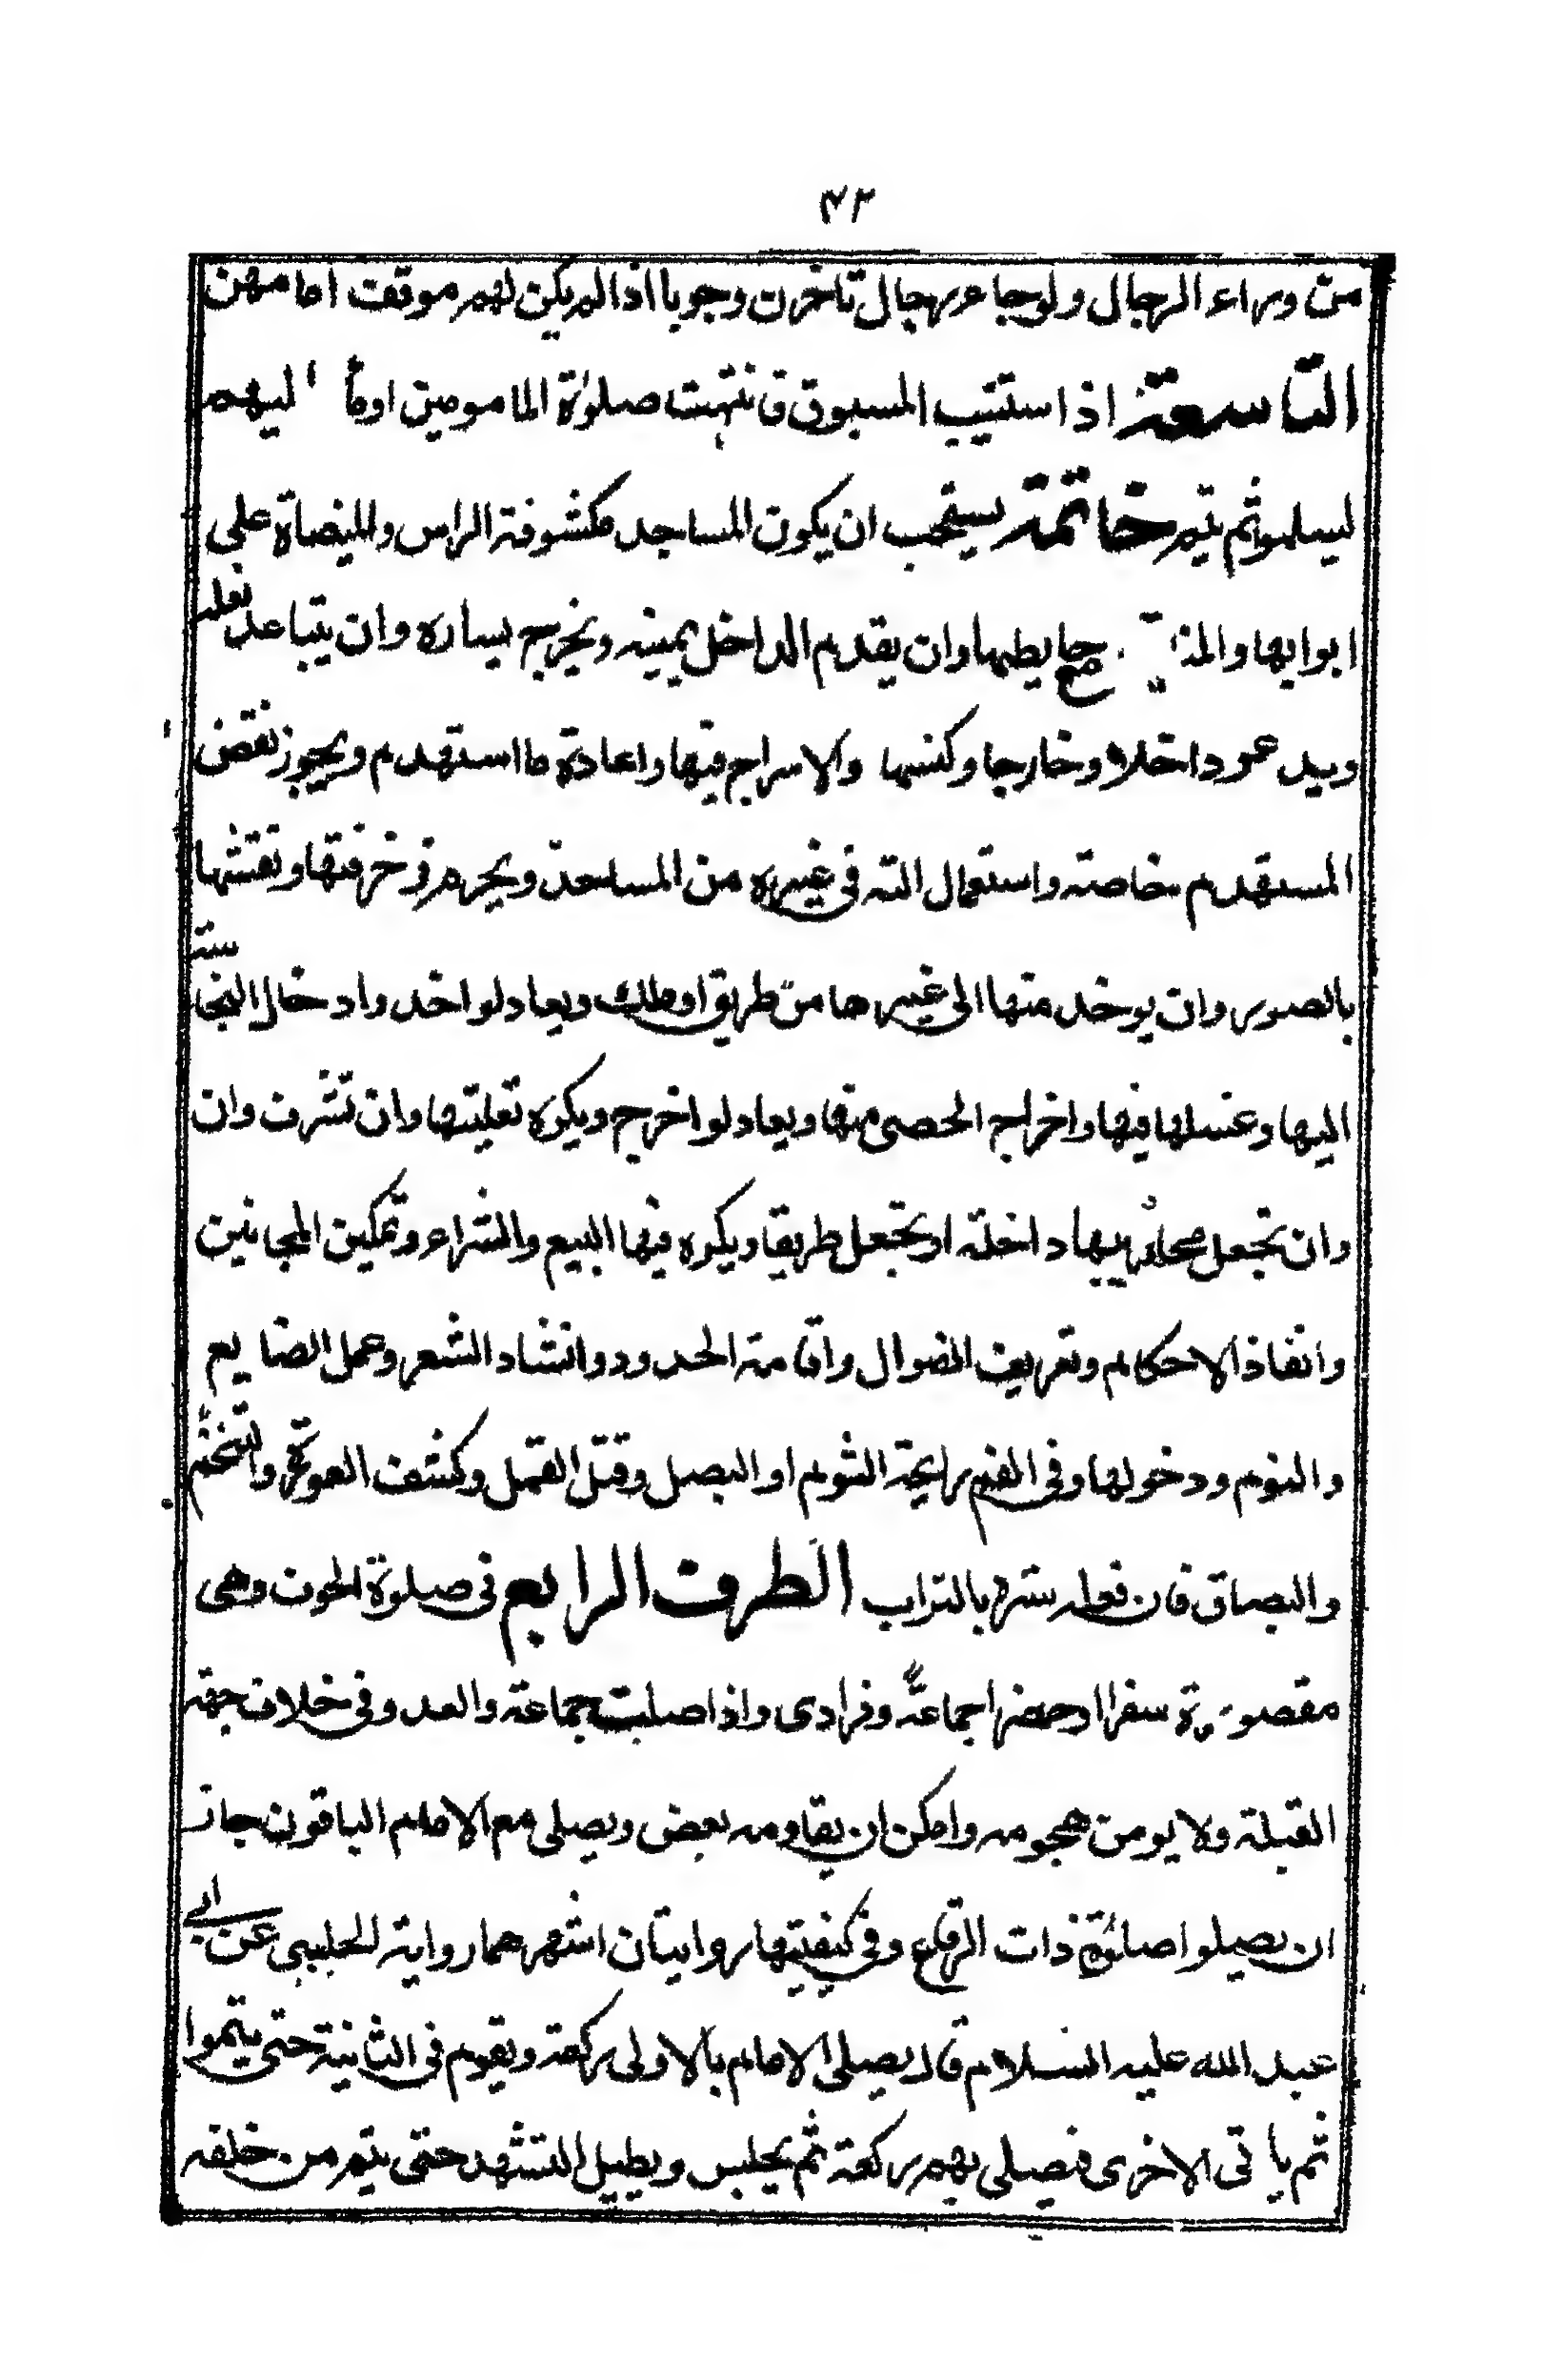 ۴۲
من وراء الرجال ولو جاء رجال تاخرن وجوبا اذا لم يكن لهم موقف امامهن
التاسعة اذا استنيب المسبوق فانتهت صلوة المامومين اومأ اليهم
ليسلموا ثم يتم خاتمة يستحب ان يكون المساجد مكشوفة الراس والميضاة على
ابوابها والمنا مع حايطها وان يقدم الداخل يمينه ويخرج يساره وان يتباعد نعليه
ويدعو داخلا وخارجا وكنسها والاسراج فيها واعادة ما استهدم ويجوز نقض
المستهدم خاصته واستعمال الته فى غيره من المساجد ويحرم زخرفتها ونقشها
بالصور وان يوخذ منها الى غيرها من طريق او ملك ويعاد لو اخذ وادخال النجاسة
اليها وغسلها فيها واخراج الحصى منها ويعاد لو اخرج ويكره تعليتها وان تشرف وان
وان تجعل محاريبها داخلة او تجعل طريقا ويكره فيها البيع والشراء وتمكين المجانين
وانفاذ الاحكام وتعريف الضوال واقامة الحدود وانشاد الشعر وعمل الصنايع
والنوم ودخولها وفى الفم رايحة الثوم او البصل وقتل القمل وكشف العورة والتنخم
والبصاق فان فعله ستره بالتراب الطرف الرابع فى صلوة الخوف وهى
مقصورة سفرا او حضرا جماعة وفرادى واذا صليت جماعة والعدو فى خلاف جهة
القبلة ولا يومن هجومه وامكن ان يقاومه بعض ويصلى مع الامام الباقون جاز
ان يصلوا صلوة ذات الرقاع وفى كيفيتها روايتان اشهرهما رواية الحلبى عن ابى
عبد الله عليه السلام قال يصلى الامام بالاولى ركعة ويقوم فى الثانية حتى يتموا
ثم ياتى الاخرى فيصلى بهم ركعة ثم يجلس ويطيل التشهد حتى يتم من خلفه